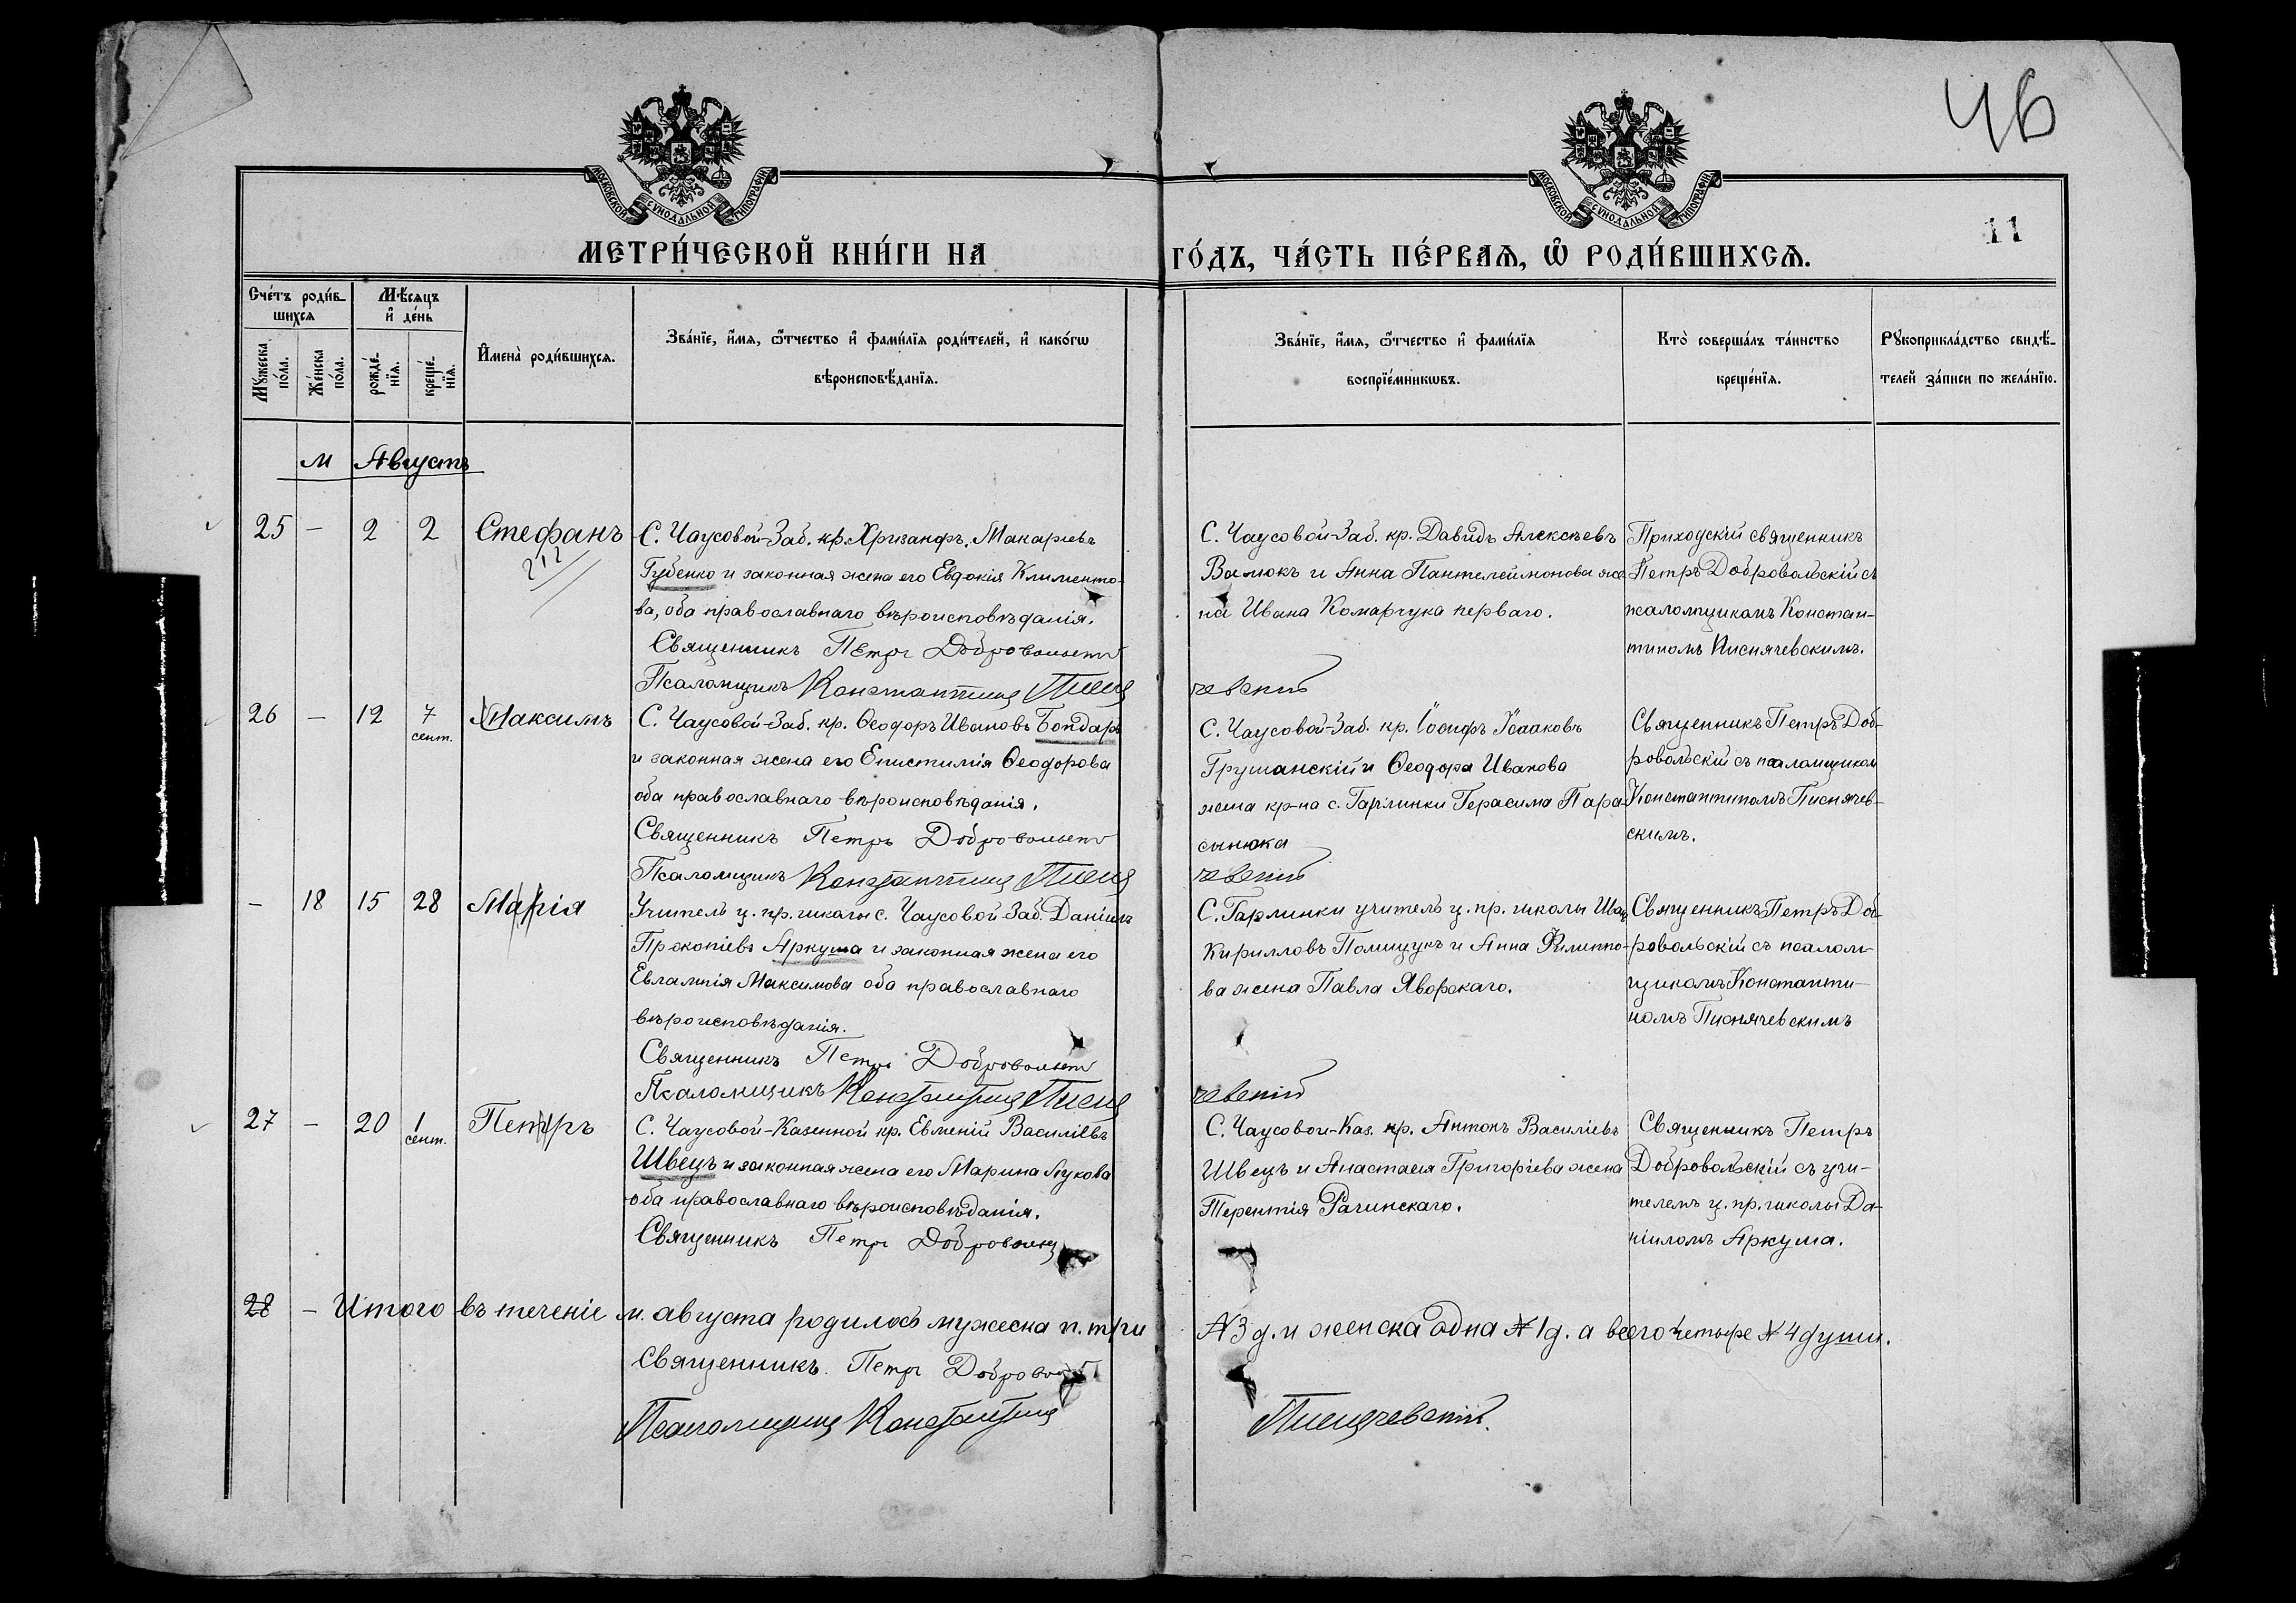 46
МОСКОВСКОЙ СУНОДАЛЬНОЙ ТИПОГРАФІИ
МОСКОВСКОЙ СУНОДАЛЬНОЙ ТИПОГРАФІИ
11
МЕТРИ́ЧЕСКОЙ КНИ́ГИ НА
ГО́ДЪ, ЧА́СТЬ ПЕ́РВАѦ, Ѽ РОДИ́ВШИХСѦ.
Сче́тъ роди́в-
шихсѧ
Мѣ́сѧцъ
и҆ де́нь
Мꙋ́жеска по́ла.
Же́нска по́ла.
рожде́-
нїѧ.
креще́-
нїѧ.
И҆мена̀ роди́вшихсѧ.
Зва́нїе, и҆́мѧ, ѻ҆́тчество и҆ фами́лїѧ роди́телей, и҆ како́гѡ
вѣроисповѣ́данїѧ.
Зва́нїе, и҆́мѧ, ѻ҆́тчество и҆ фами́лїѧ
воспрїе́мникѡвъ.
Кто̀ соверша́лъ та́инство
креще́нїѧ.
Рꙋкоприкла́дство свидѣ́-
телей за́писи по жела́нїю.
м Августъ
25 — 2 2 Стефанъ
212
С. Чаусовой-Заб. кр. Хрисанфъ Макаріевъ
Губенко и законная жена его Евдокія Клименто-
ва, оба православнаго вѣроисповѣданія.
Священникъ Петръ Добровольскій
Псаломщикъ Константинъ Писня
С. Чаусовой-Заб. кр. Давидъ Алексѣевъ
Валюкъ и Анна Пантелеймонова же-
на Ивана Комарчука перваго.
чевскій
Приходскій священникъ
Петръ Добровольскій съ
псаломщикомъ Констан-
тиномъ Писнячевскимъ.
26 — 12 7 сент. Максимъ
С. Чаусовой-Заб. кр. Ѳеодоръ Ивановъ Бондарь
и законная жена его Епистимія Ѳеодорова
оба православнаго вѣроисповѣданія.
Священникъ Петръ Добровольскій
Псаломщикъ Константинъ Писня
С. Чаусовой-Заб. кр. Іосифъ Исааковъ
Грушанскій и Ѳеодора Иванова
жена кр-на с. Гарлинки Герасима Пара-
сынюка
чевскій
Священникъ Петръ Доб-
ровольскій съ псаломщикомъ
Константиномъ Писнячев-
скимъ.
— 18 15 28 Марія
Учитель ц. пр. школы с. Чаусовой-Заб. Даніилъ
Прокопіевъ Аркуша и законная жена его
Евлампія Максимова оба православнаго
вѣроисповѣданія.
Священникъ Петръ Добровольскій
Псаломщикъ Константинъ Писня
С. Гарлинки учитель ц. пр. школы Иванъ
Кирилловъ Полищукъ и Анна Филиппо-
ва жена Павла Яворскаго.
чевскій
Священникъ Петръ Доб-
ровольскій съ псалом-
щикомъ Константи-
номъ Писнячевскимъ
27 — 20 1 сент. Петръ
С. Чаусовой-Казенной кр. Евменій Василіевъ
Швецъ и законная жена его Марина Лукова
оба православнаго вѣроисповѣданія.
Священникъ Петръ Добровольскій
С. Чаусовой-Каз. кр. Антонъ Василіевъ
Швецъ и Анастасія Григоріева жена
Терентія Рачинскаго.
Священникъ Петръ
Добровольскій съ учи-
телемъ ц. пр. школы Да-
ніиломъ Аркуша.
28 — Итого въ теченіе м. августа родилось мужеска п. три
№ 3 д. и женска одна № 1 д. а всего четыре № 4 души.
Священникъ Петръ Добровольскій
Псаломщикъ Константинъ
Писнячевскій.